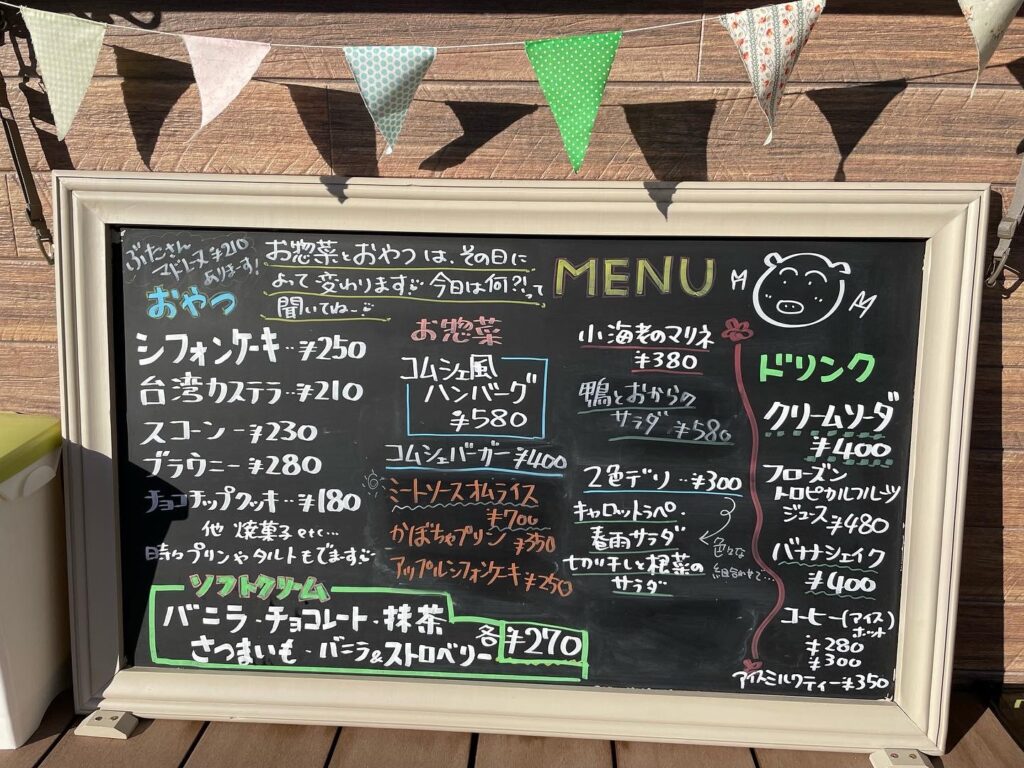 ぶたさん
マドレーヌ ¥210
あります!
お惣菜とおやつは、その日に
よって変わります 今日は何?!って
聞いてねー
MENU
おやつ
シフォンケーキ‥¥250
台湾カステラ‥¥210
スコーン‥¥230
ブラウニー‥¥280
チョコチップクッキー‥¥180
他 焼菓子etc…
時々プリンやタルトもでます
ソフトクリーム
バニラ・チョコレート・抹茶
さつまいも・バニラ&ストロベリー
各¥270
お惣菜
コムシェ風
ハンバーグ
¥580
コムシェバーガー ¥400
ミートソースオムライス
¥700
かぼちゃプリン ¥350
アップルシフォンケーキ ¥250
小海老のマリネ
¥380
鴨とおからの
サラダ ¥580
2色デリ‥¥300
キャロットラペ・
春雨サラダ
と根菜の
サラダ
色々な
組合わせで…
ドリンク
クリームソーダ
¥400
フローズン
トロピカルフルーツ
ジュース ¥480
バナナシェイク
¥400
コーヒー(アイス)
ホット
¥280
¥300
アイスミルクティー ¥350